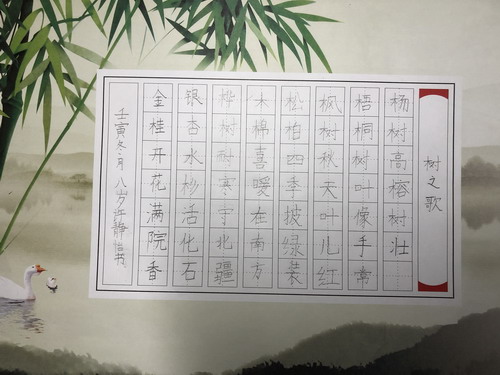 树之歌
杨树高榕树壮
梧桐树叶像手常
枫树秋天叶儿红
松柏四季披绿装
木棉喜暖在南方
桦树耐寒守北疆
银杏水杉活化石
金桂开花满院香
壬寅冬月 八岁许静怡书